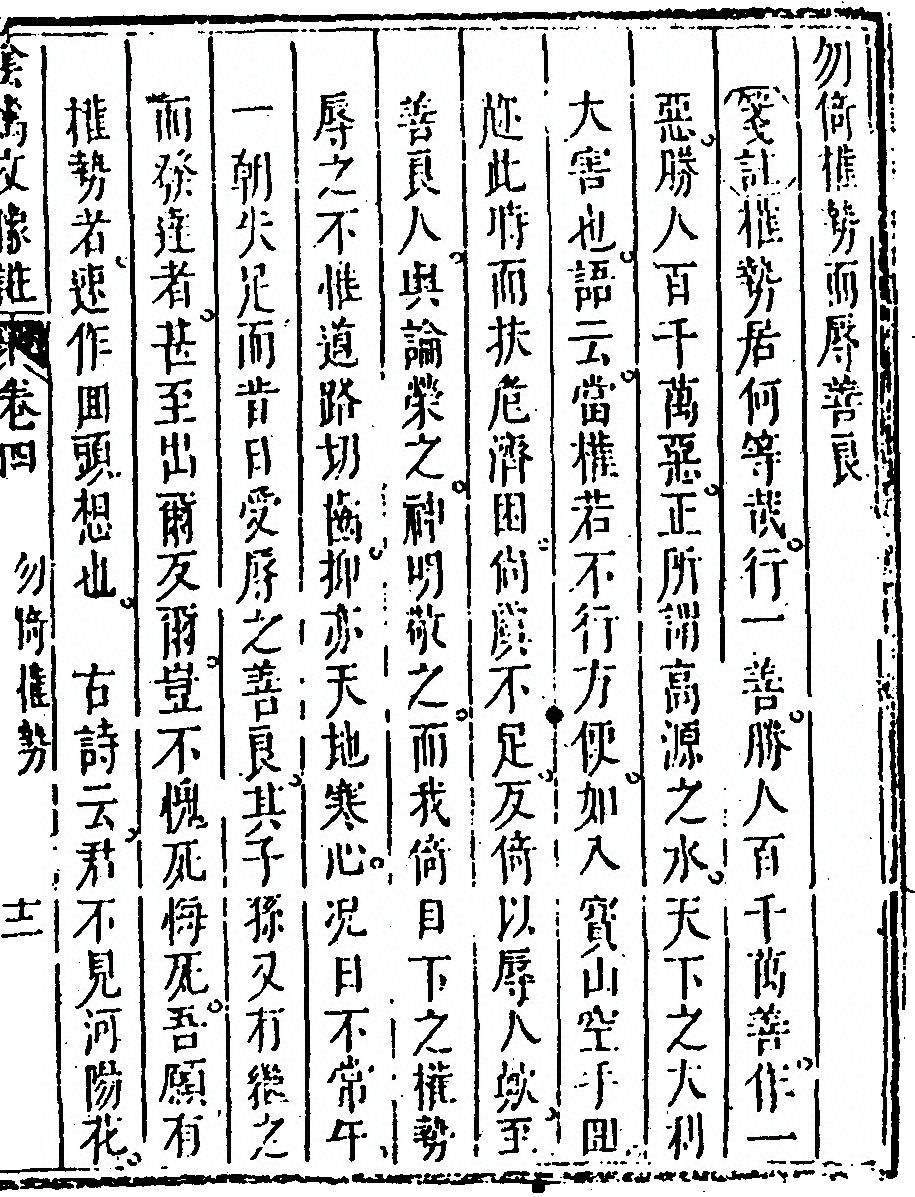 勿倚權勢而辱善良
箋註權勢居何等哉行一善勝人百千萬善作一
惡勝人百千萬惡正所謂高源之水天下之大利
大害也語云當權若不行方便如入寶山空手回
趂此時而扶危濟困尚慮不足反倚以辱人歟至
善良人與論榮之神明敬之而我倚目下之權勢
辱之不惟道路切齒抑亦天地寒心况日不常午
一朝失足而昔日受辱之善良其子孫又有繼之
而發達者甚至出爾反爾豈不愧死悔死吾願有
權勢者速作回頭想也 古詩云君不見河陽花
陰騭文像註 卷四 勿倚權勢 十二